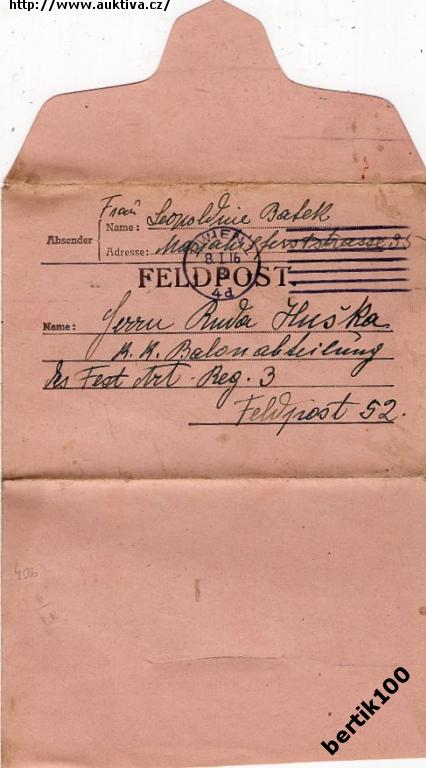 http://www.auktiva.cz/
Frau Leopoldine Batek
Absender Name:
Adresse: 35
WIEN 1
8.I.16
4d
FELDPOST.
Name: Herrn Ruda Huška
K. K. Balonabteilung
Fest Art. Reg. 3
Feldpost 52.
bertik100